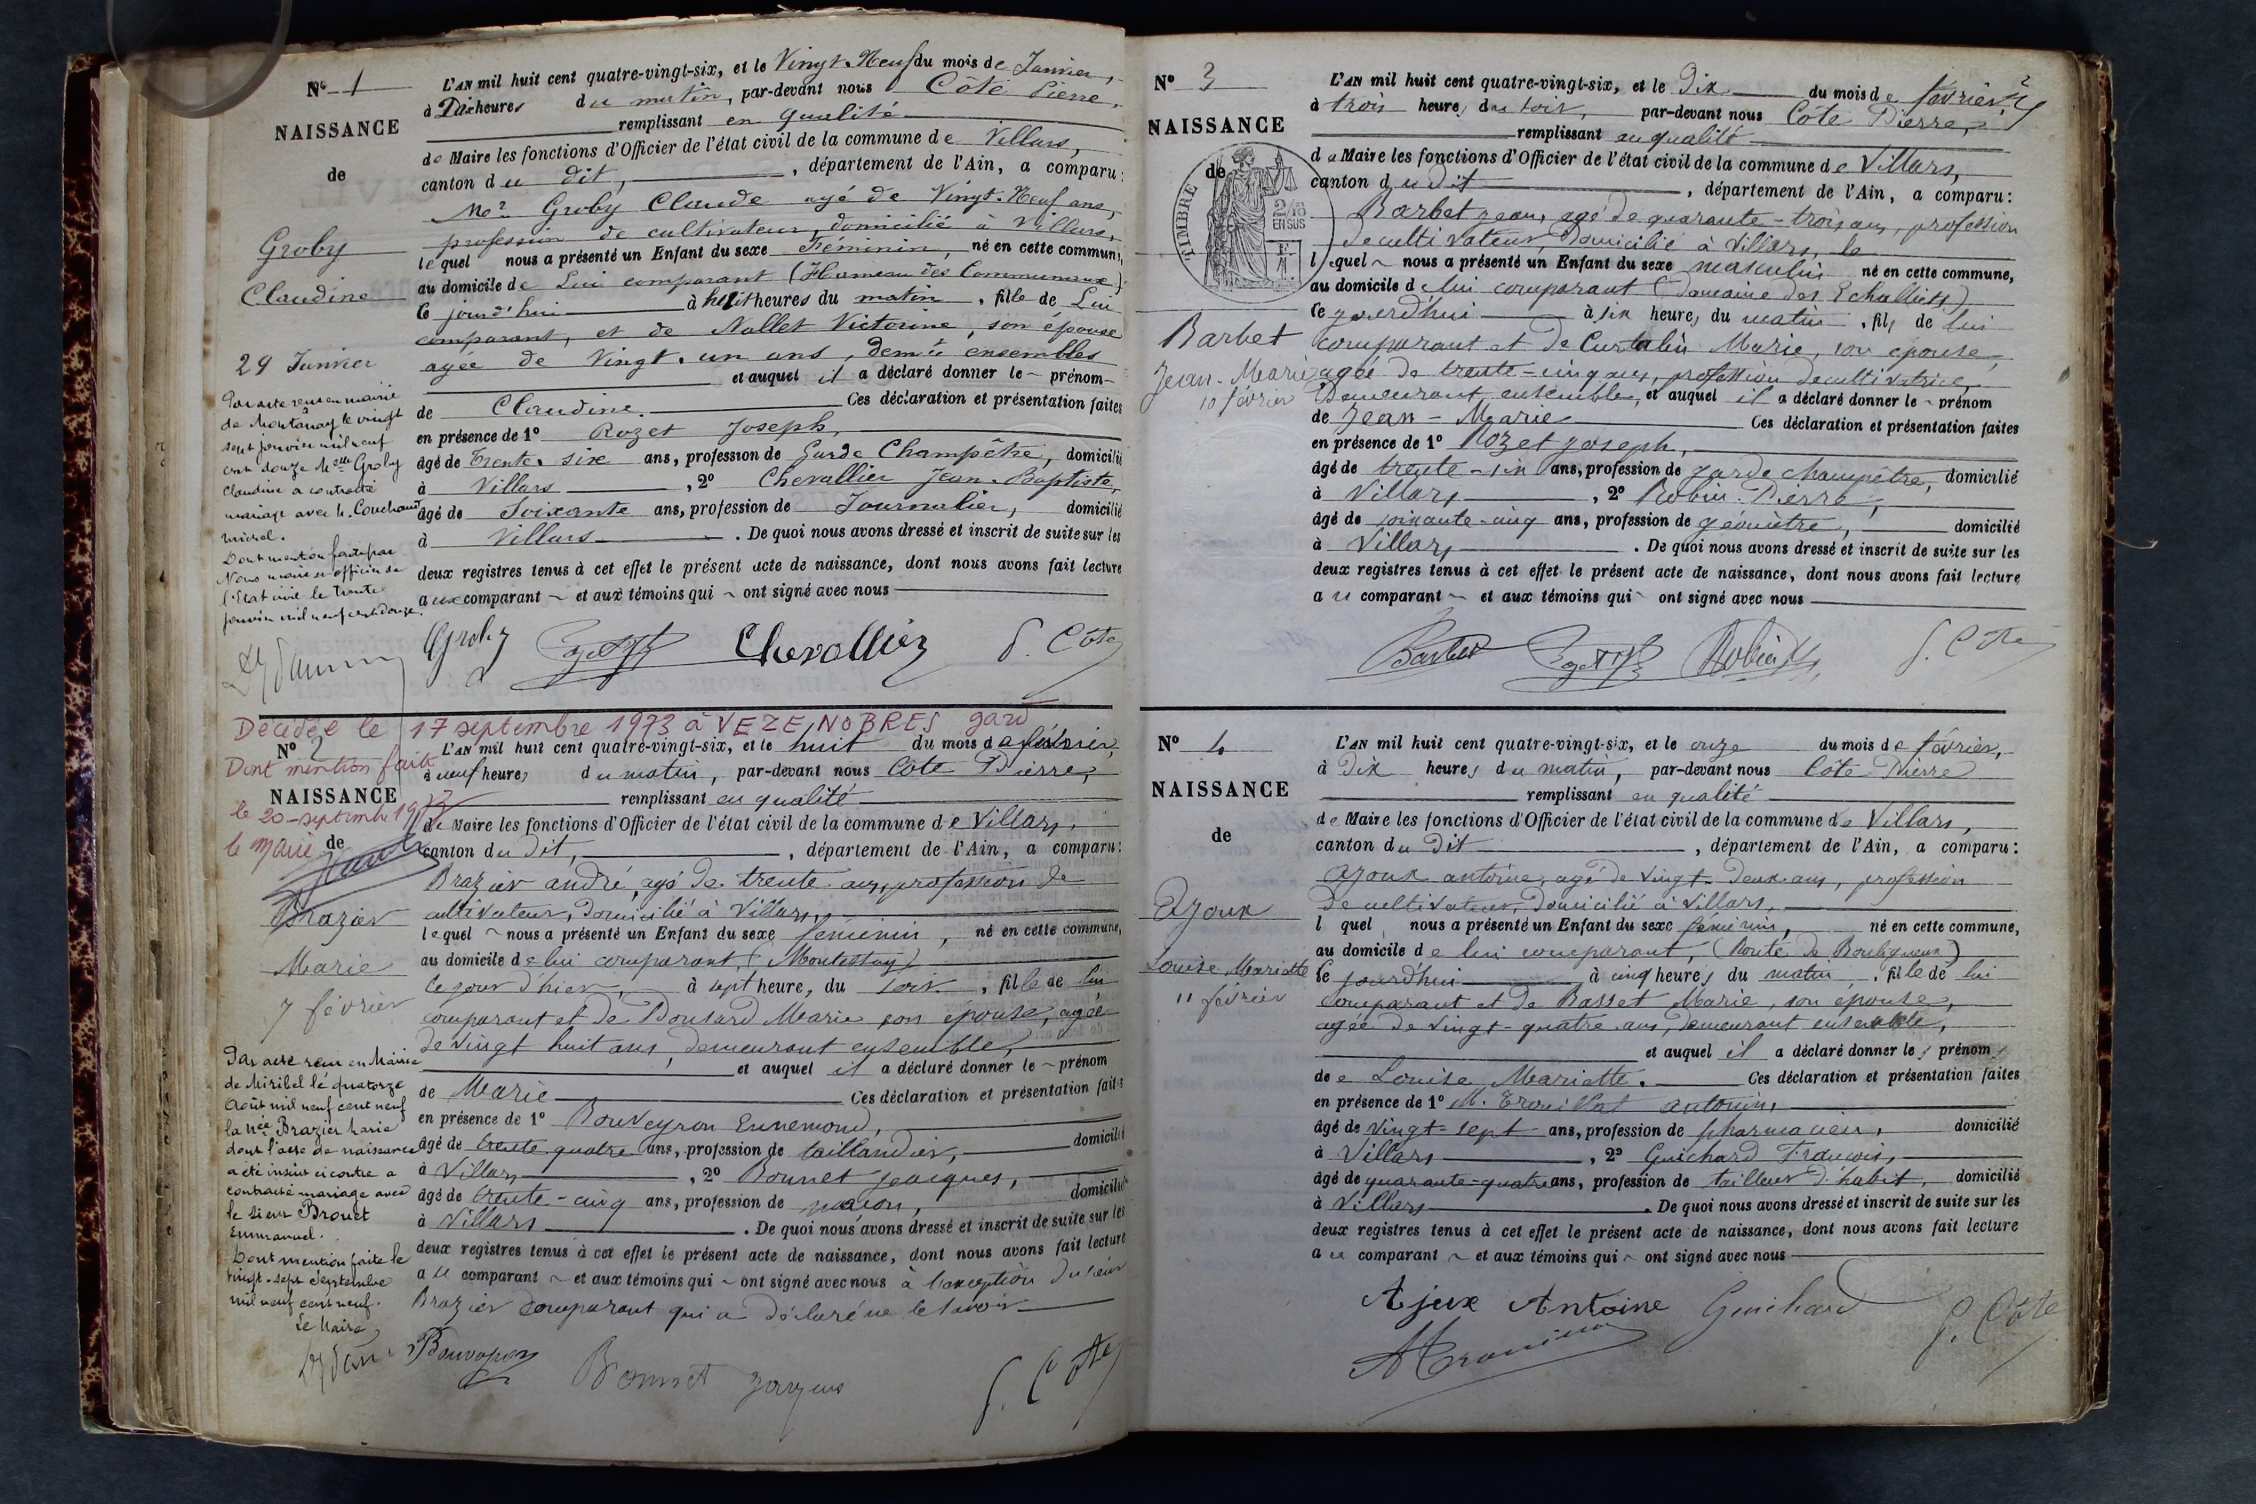 Nº 1
NAISSANCE
de
Groby
Claudine
29 Janvier
Par acte reçu en mairie
de Montanay le vingt
sept janvier mil neuf
cent douze Melle Groby
Claudine a contracté
mariage avec M. Couchaud
Michel.
Dont mention faite par
Nous maire et officier de
l'Etat civil le trente
janvier mil neuf cent douze.
L'AN mil huit cent quatre-vingt-six, et le Vingt-Neuf du mois de Janvier,
à Dix heures du matin, par-devant nous Côte Pierre,
remplissant en qualité
de Maire les fonctions d'Officier de l'état civil de la commune de Villars,
canton du dit, département de l'Ain, a comparu:
Mr Groby Claude agé de Vingt-Neuf ans,
profession de cultivateur, domicilié à Villars,
lequel nous a présenté un Enfant du sexe Féminin, né en cette commune,
au domicile de Lui comparant (Hameau des Communaux)
Ce jourd'hui à huit heures du matin, fille de Lui
comparant, et de Nallet Victorine, son épouse
agée de Vingt-un ans, demt ensembles
et auquel il a déclaré donner le prénom
de Claudine. Ces déclaration et présentation faites
en présence de 1º Rozet Joseph,
âgé de Trente-six ans, profession de Garde Champêtre, domicilié
à Villars, 2º Chevallier Jean-Baptiste,
âgé de Soixante ans, profession de Journalier, domicilié
à Villars. De quoi nous avons dressé et inscrit de suite sur les
deux registres tenus à cet effet le présent acte de naissance, dont nous avons fait lecture
aux comparant et aux témoins qui ont signé avec nous
Groby Chevallier P. Côte
Décédée le 17 septembre 1973 à VEZENOBRES gard
Dont mention faite
le 20 septembre 1973
le Maire
Nº 2
NAISSANCE
de
Brazier
Marie
7 février
Par acte reçu en Mairie
de Miribel le quatorze
Août mil neuf cent neuf
la née Brazier Marie
dont l'acte de naissance
a été inscrit ci contre a
contracté mariage avec
le sieur Brouet
Emmanuel.
Dont mention faite le
vingt-sept Septembre
mil neuf cent neuf.
Le Maire
L'AN mil huit cent quatre-vingt-six, et le huit du mois de février,
à neuf heures du matin, par-devant nous Côte Pierre,
remplissant en qualité
de Maire les fonctions d'Officier de l'état civil de la commune de Villars,
canton du dit, département de l'Ain, a comparu:
Brazier andré, agé de trente ans, profession de
cultivateur, domicilié à Villars,
lequel nous a présenté un Enfant du sexe féminin, né en cette commune,
au domicile de lui comparant, (Montessuy)
le jour d'hier, à sept heure, du soir, fille de lui
comparant et de Dousard Marie son épouse, agée
de vingt huit ans, demeurant ensemble,
et auquel il a déclaré donner le prénom
de Marie Ces déclaration et présentation faites
en présence de 1º Bouveyron Ennemond,
âgé de trente quatre ans, profession de taillandier, domicilié
à Villars, 2º Bonnet jacques,
âgé de trente-cinq ans, profession de maçon, domicilié
à Villars. De quoi nous avons dressé et inscrit de suite sur les
deux registres tenus à cet effet le présent acte de naissance, dont nous avons fait lecture
au comparant et aux témoins qui ont signé avec nous à l'exception du sieur
Brazier comparant qui a déclaré ne le savoir
Bouveyron Bonnet Jacques P. Côte
2
Nº 3
NAISSANCE
de
TIMBRE
2/10
EN SUS
Barbet
Jean-Marie
10 février
L'AN mil huit cent quatre-vingt-six, et le Dix du mois de février,
à trois heures du soir, par-devant nous Côte Pierre,
remplissant en qualité
de Maire les fonctions d'Officier de l'état civil de la commune de Villars,
canton du dit, département de l'Ain, a comparu:
Barbet jean, agé de quarante-trois ans, profession
de cultivateur, domicilié à Villars, le
lequel nous a présenté un Enfant du sexe masculin né en cette commune,
au domicile de lui comparant (domaine des Echalliets)
le jourd'hui à six heures du matin, fils de lui
comparant et de Curtalin Marie, son épouse,
agée de trente-cinq ans, profession de cultivatrice,
Demeurant ensemble, et auquel il a déclaré donner le prénom
de Jean-Marie Ces déclaration et présentation faites
en présence de 1º Rozet joseph,
âgé de trente-six ans, profession de garde champêtre, domicilié
à Villars, 2º Robin Pierre,
âgé de soixante-cinq ans, profession de géomètre, domicilié
à Villars. De quoi nous avons dressé et inscrit de suite sur les
deux registres tenus à cet effet le présent acte de naissance, dont nous avons fait lecture
au comparant et aux témoins qui ont signé avec nous
Barbet Robin P. Côte
Nº 4
NAISSANCE
de
Ajoux
Louise Mariette
11 février
L'AN mil huit cent quatre-vingt-six, et le onze du mois de février,
à Dix heures du matin, par-devant nous Côte Pierre
remplissant en qualité
de Maire les fonctions d'Officier de l'état civil de la commune de Villars,
canton du Dit, département de l'Ain, a comparu:
ajoux antoine, agé de vingt-deux ans, profession
de cultivateur, domicilié à Villars,
l quel nous a présenté un Enfant du sexe féminin, né en cette commune,
au domicile de lui comparant, (Route de Bouligneux)
le jourd'hui à cinq heures du matin, fille de lui
comparant et de Basset Marie, son épouse,
agée de vingt-quatre ans, demeurant ensemble,
et auquel il a déclaré donner les prénoms
de Louise Mariette. Ces déclaration et présentation faites
en présence de 1º M. Trouillat antonin,
âgé de vingt-sept ans, profession de pharmacien, domicilié
à Villars, 2º Guichard François,
âgé de quarante-quatre ans, profession de tailleur d'habit, domicilié
à Villars. De quoi nous avons dressé et inscrit de suite sur les
deux registres tenus à cet effet le présent acte de naissance, dont nous avons fait lecture
au comparant et aux témoins qui ont signé avec nous
Ajux Antoine Guichard P. Côte